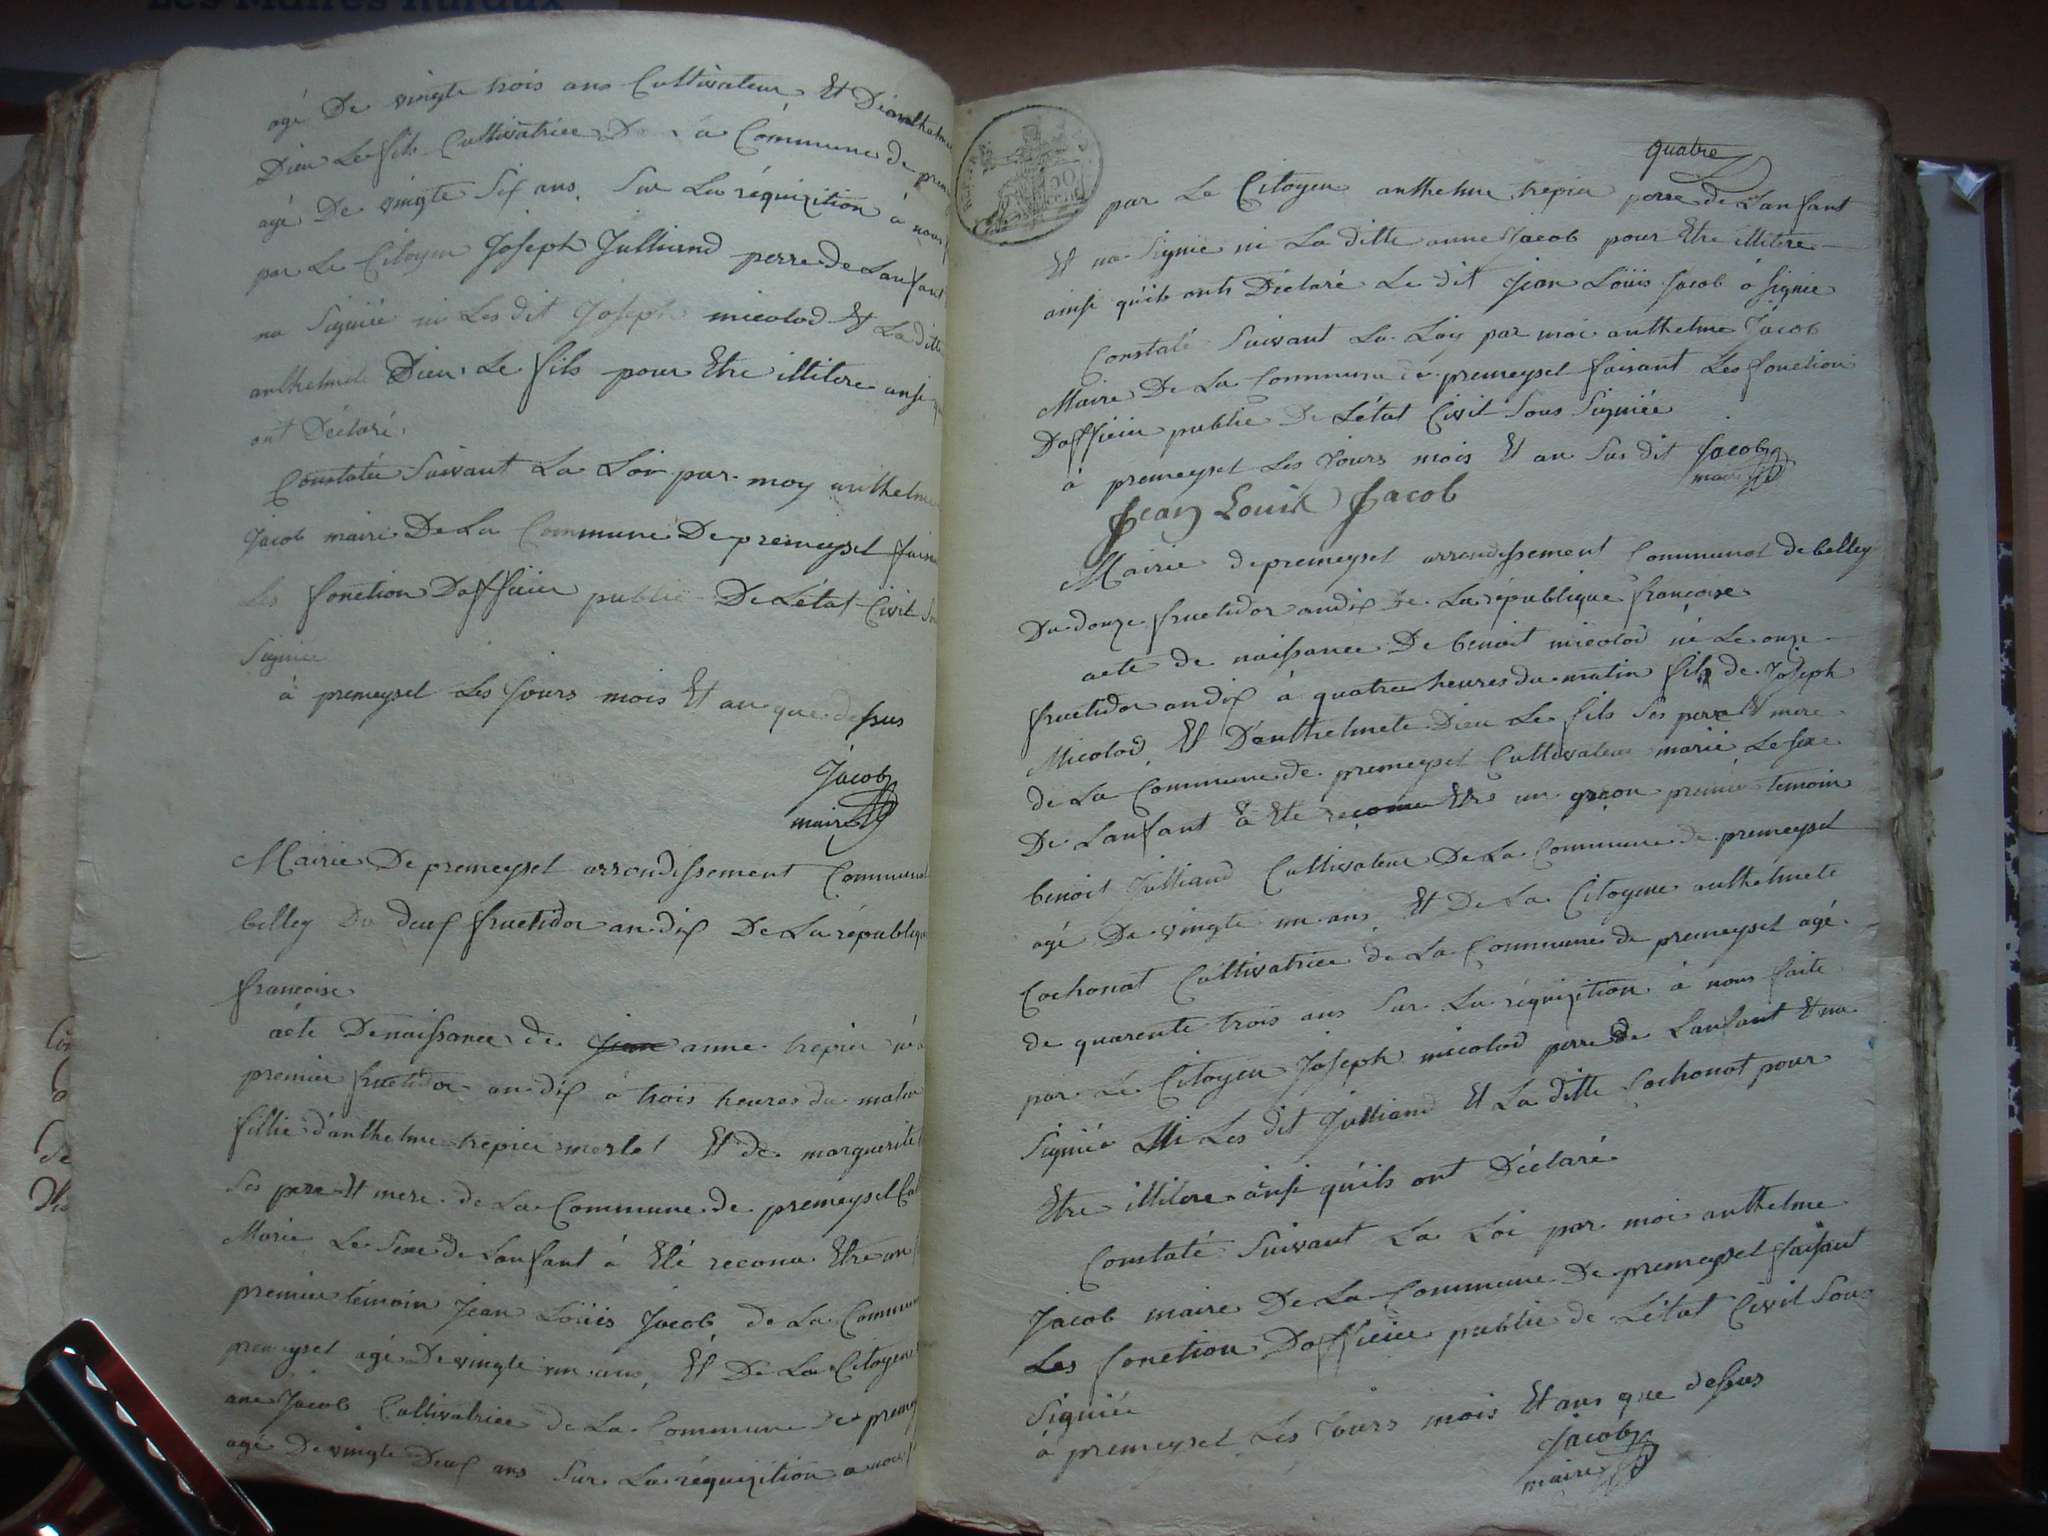 Les Maires Ruraux
agé De vingte trois ans Cultivateur Et Déanthelme
Dieu Le fils Cultivatrice De La Commune de prem
agé De vingte Six ans, Sur La réquizition à nous
par Le Citoyen Joseph Julliand perre de Lanfant
na Signiée ni Les dit Joseph micolod Et La ditte
anthelmete Dieu Le fils pour Etre illitere ansi
ont Déclaré.
Constatée Suivant La Loi par moy anthelme
Jacob maire De La Commune De premeysel faisa
Les fonction Dofficier public De Létat Civil
Signiée
à premeysel Les Jours mois Et an que dessus
Jacob
maire
Mairie De premeysel arrondissement Communal
belley Du deux fructidor an dix De La république
francoise
acte De naissance de Jean anne trepier né
premier fructidor an dix à trois heures du matin
fillie d'anthelme trepier merlet Et de marguerite
Ses pere Et mere de La Commune de premeysel Cul
Marie Le Sexe de Lanfant à Eté reconu Etre un
premier témoin Jean Loüis Jacob de La Commun
premeysel agé De vingte un ans, Et De La Citoyene
ane Jacob Cultivatrice de La Commune de preme
agé De vingte Deux ans Sur La réquizition a nous
quatre
par Le Citoyen anthelme trepier perre de Lanfant
Et na Signiée ni La ditte anne Jacob pour Etre illitere
ainsi quils onts Déclaré Le dit Jean Loüis Jacob à Signiée
Constaté Suivant La Loy par moi anthelme Jacob
Maire De La Commune de premeysel faisant Les fonction
Dofficier public De Létat Civil Sous Signiée
à premeysel Les Jours mois Et an Sus dit Jacob
maire
Jean Louis Jacob
Mairie de premeysel arrondissement Communal de belley
Du douze fructidor an dix De La république francoise
acte de naissance De benoit micolod né Le onze
fructidor an dix à quatre heures du matin fils de Joseph
Micolod Et D'anthelmete Dieu Le fils Ses pere Et mere
de La Commune de premeysel Cultivateur marié Le sexe
De Lanfant à Eté reconu Etre un garcon premier temoin
benoit Julliand Cultivateur De La Commune de premeysel
agé De vingte un ans Et De La Citoyene anthelmete
Cochonat Cultivatrice de La Commune de premeysel agé
de quarente trois ans Sur La réquizition à nous faite
par Le Citoyen Joseph micolod perre de Lanfant Et na
Signiée Ni Les dit Julliand Et La ditte Cochonat pour
Etre illitere ainsi quils ont Déclaré
Constaté Suivant La Loi par moi anthelme
Jacob maire De La Commune De premeysel faisant
Les fonction Dofficier public de Létat Civil Sous
Signiée
à premeysel Les Jours mois Et ans que dessus
Jacob
maire